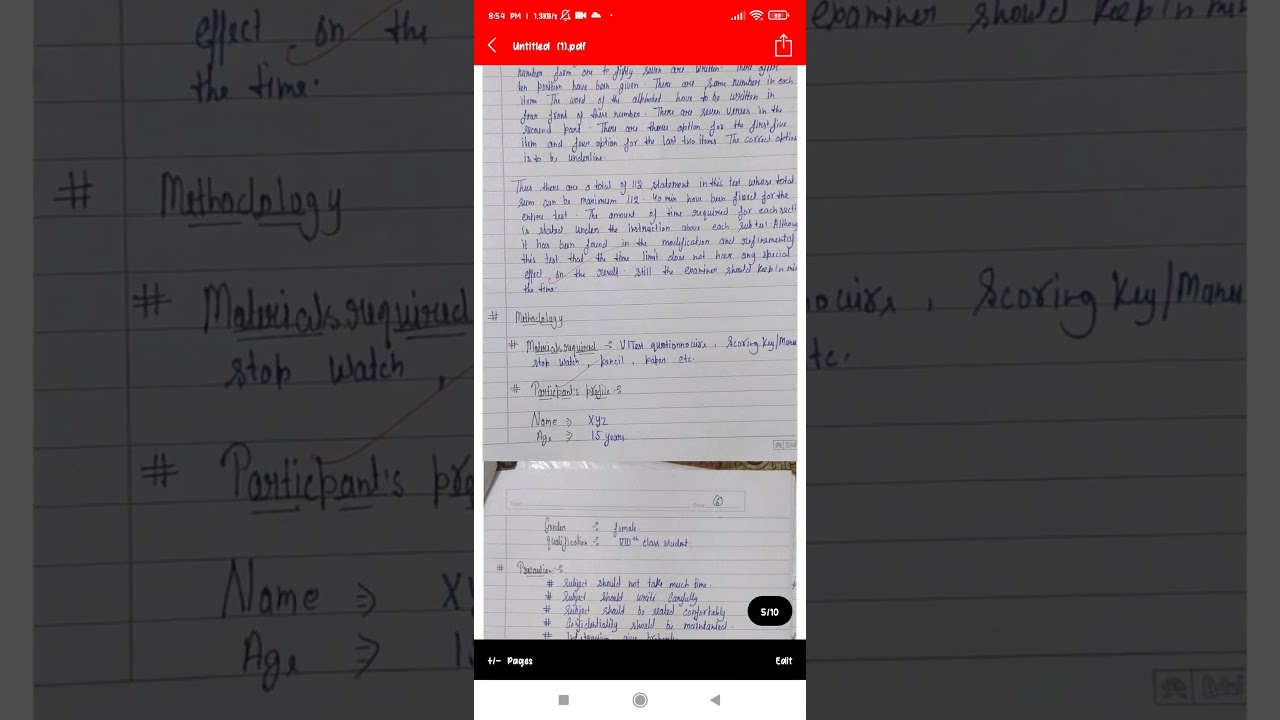 effect on the
the time.
# Methodology
# Materials required
stop watch ,
# Participant's pro
Name => XY
Age => 1
8:59 PM | 1.3KB/s
58
Untitled (1).pdf
number form one to fighty seven are written. There after
ten position have been given. There are same number in each
item. The word of the alphabet have to be written in
four front of these number. There are seven verses in the
second part. There are theres option for the first five
item and four option for the last two items. The correct option
is to be underline.
Thus there are a total of 112 statement in this test whose total
sum can be maximum 112. 40 min have been fixed for the
entire test. The amount of time required for each secti
is stated under the instruction above each subtest. Althou
it has been found in the modification and refinement of
this test that the time limit does not have any special
effect on the result. still the examiner should keep in min
the time.
# Methodology
# Materials required :- VI Test questionnaire , Scoring Key/Manu
stop watch , pencil , paper etc.
# Participant's profile :-
Name => XYZ
Age => 15 years
Date
6
Gender :- female.
Qualification :- VIIIth class student.
# Precaution :-
# Subject should not take much time.
# Subject should write carefully
# Subject should be seated comfortably
# Confidentiality should be maintained.
5/10
+/- Pages
Edit
examiner should keep in min
, Scoring Key/Manu
tc.